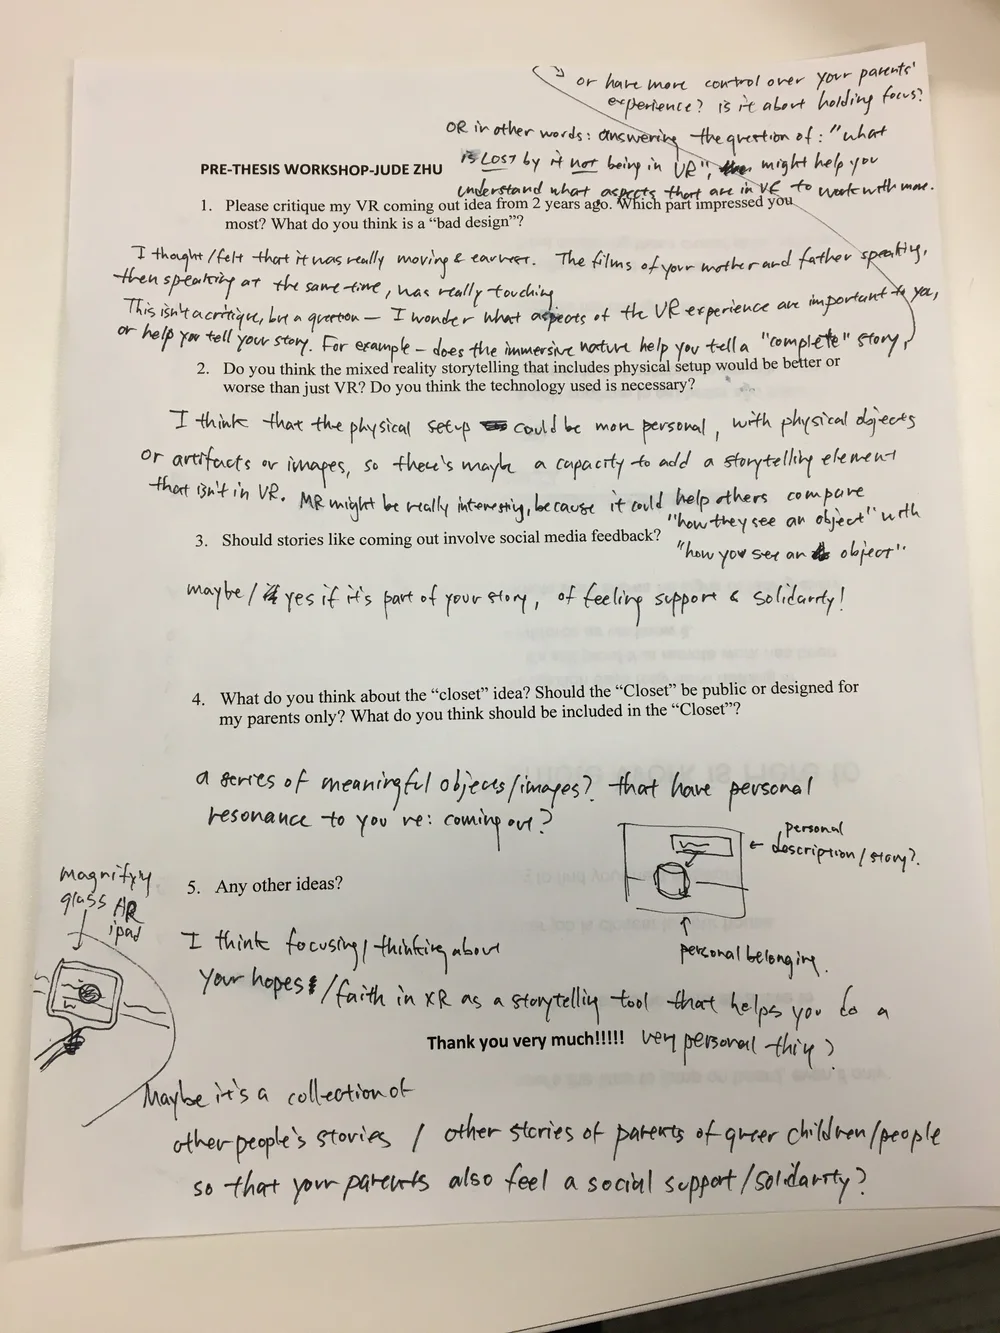 or have more control over your parents'
experience? is it about holding focus?
OR in other words: answering the question of: "what
is LOST by it not being in VR", might help you
understand what aspects that are in VR to work with more.
PRE-THESIS WORKSHOP-JUDE ZHU
1. Please critique my VR coming out idea from 2 years ago. Which part impressed you
most? What do you think is a “bad design”?
I thought/felt that it was really moving & earnest. The films of your mother and father speaking,
then speaking at the same time, was really touching
This isn't a critique, but a question — I wonder what aspects of the VR experience are important to you,
or help you tell your story. For example - does the immersive nature help you tell a "complete" story,
2. Do you think the mixed reality storytelling that includes physical setup would be better or
worse than just VR? Do you think the technology used is necessary?
I think that the physical setup could be more personal, with physical objects
or artifacts or images, so there's maybe a capacity to add a storytelling element
that isn't in VR. MR might be really interesting, because it could help others compare
"how they see an object" with
"how you see an object".
3. Should stories like coming out involve social media feedback?
maybe / yes if it's part of your story, of feeling support & solidarity!
4. What do you think about the “closet” idea? Should the “Closet” be public or designed for
my parents only? What do you think should be included in the “Closet”?
a series of meaningful objects/images? that have personal
resonance to you re: coming out?
personal
description/story?
personal belonging.
5. Any other ideas?
magnifying
glass AR
ipad
I think focusing/thinking about
your hopes/faith in XR as a storytelling tool that helps you do a
very personal thing?
Thank you very much!!!!!
Maybe it's a collection of
other people's stories / other stories of parents of queer children/people
so that your parents also feel a social support/solidarity?